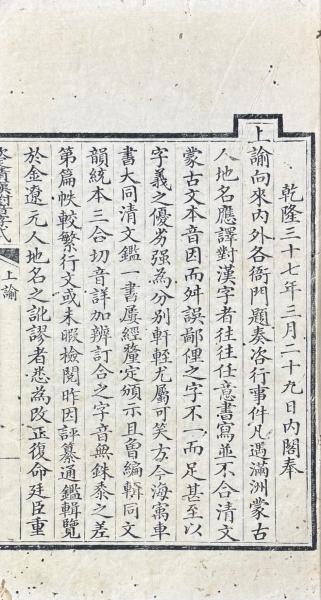 乾隆三十七年三月二十九日內閣奉
上諭向來內外各衙門題奏咨行事件凡遇滿洲蒙古
人地名應譯對漢字者往往任意書寫並不合清文
蒙古文本音因而舛誤鄙俚之字不一而足甚至以
字義之優劣强為分別軒輊尤屬可笑方今海寓車
書大同清文鑑一書屢經釐定頒示且曾編輯同文
韻統本三合切音詳加辨訂合之字音無銖黍之差
第篇帙較繁行文或未暇檢閱昨因評纂通鑑輯覽
於金遼元人地名之訛謬者悉為改正復命廷臣重
上諭